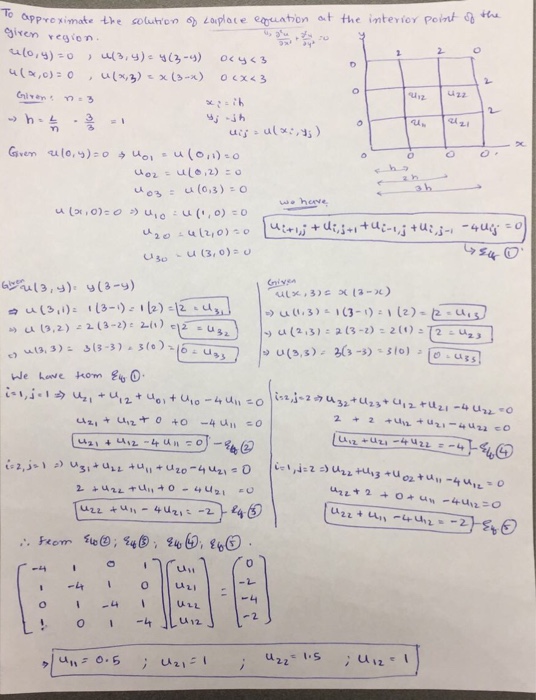 To approximate the solution of Laplace equation at the interior point of the
given region. u, ∂²u/∂x² + ∂²u/∂y² = 0
u(0,y)=0 ; u(3,y) = y(3-y) 0<y<3
u(x,0)=0 , u(x,3) = x(3-x) 0<x<3
Given: n=3
→ h = L/n = 3/3 = 1
xi = ih
yj = jh
uij = u(xi, yj)
y
2 2 0
0 2
0 u12 u22 2
0 u11 u21
0 0 0 0 x
h
2h
3h
Given u(0,y)=0 ⇒ u01 = u(0,1)=0
u02 = u(0,2)=0
u03 = u(0,3)=0
u(x,0)=0 ⇒ u10 = u(1,0)=0
u20 = u(2,0)=0
u30 = u(3,0)=0
we have
ui+1,j + ui,j+1 + ui-1,j + ui,j-1 - 4uij = 0
↳ Eq ①
Given u(3,y) = y(3-y)
⇒ u(3,1) = 1(3-1) = 1(2) = 2 = u31
⇒ u(3,2) = 2(3-2) = 2(1) = 2 = u32
⇒ u(3,3) = 3(3-3) = 3(0) = 0 = u33
Given
u(x,3) = x(3-x)
⇒ u(1,3) = 1(3-1) = 1(2) = 2 = u13
⇒ u(2,3) = 2(3-2) = 2(1) = 2 = u23
⇒ u(3,3) = 3(3-3) = 3(0) = 0 = u33
We have from Eq ①.
i=1, j=1 ⇒ u21 + u12 + u01 + u10 - 4u11 = 0
u21 + u12 + 0 + 0 - 4u11 = 0
u21 + u12 - 4u11 = 0 - Eq ②
i=2, j=1 ⇒ u31 + u22 + u11 + u20 - 4u21 = 0
2 + u22 + u11 + 0 - 4u21 = 0
u22 + u11 - 4u21 = -2 - Eq ③
i=2, j=2 ⇒ u32 + u23 + u12 + u21 - 4u22 = 0
2 + 2 + u12 + u21 - 4u22 = 0
u12 + u21 - 4u22 = -4 - Eq ④
i=1, j=2 ⇒ u22 + u13 + u02 + u11 - 4u12 = 0
u22 + 2 + 0 + u11 - 4u12 = 0
u22 + u11 - 4u12 = -2 - Eq ⑤
∴ From Eq ②; Eq ③; Eq ④; Eq ⑤.
-4 1 0 1 u11 0
1 -4 1 0 u21 -2
0 1 -4 1 u22 = -4
1 0 1 -4 u12 -2
⇒ u11 = 0.5 ; u21 = 1 ; u22 = 1.5 ; u12 = 1